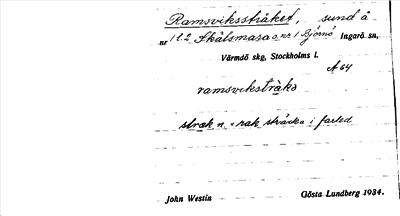 Ramsviksstråket, sund å
nr 112 Skälsmara o nr 1 Björnö Ingarö sn,
Värmdö skg, Stockholms l.
A 64
ramsvikstråkə
stråk n. = rak sträcka i farled
John Westin Gösta Lundberg 1934.